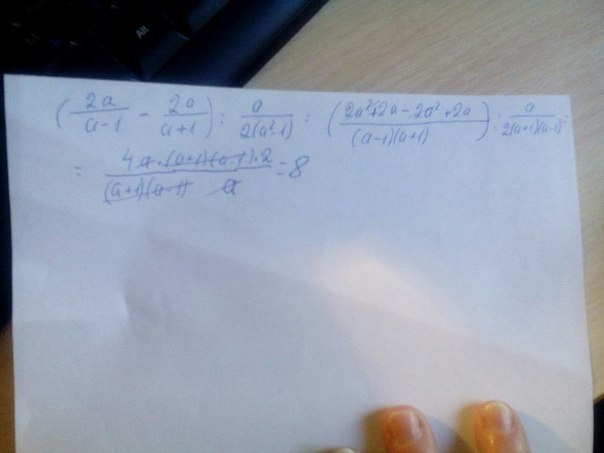 Alt
( 2a/(a-1) - 2a/(a+1) ) : a/(2(a²-1)) = ( (2a²+2a-2a²+2a)/((a-1)(a+1)) ) : a/(2(a+1)(a-1)) =
= (4a·(a+1)(a-1)·2)/((a+1)(a-1) a) = 8